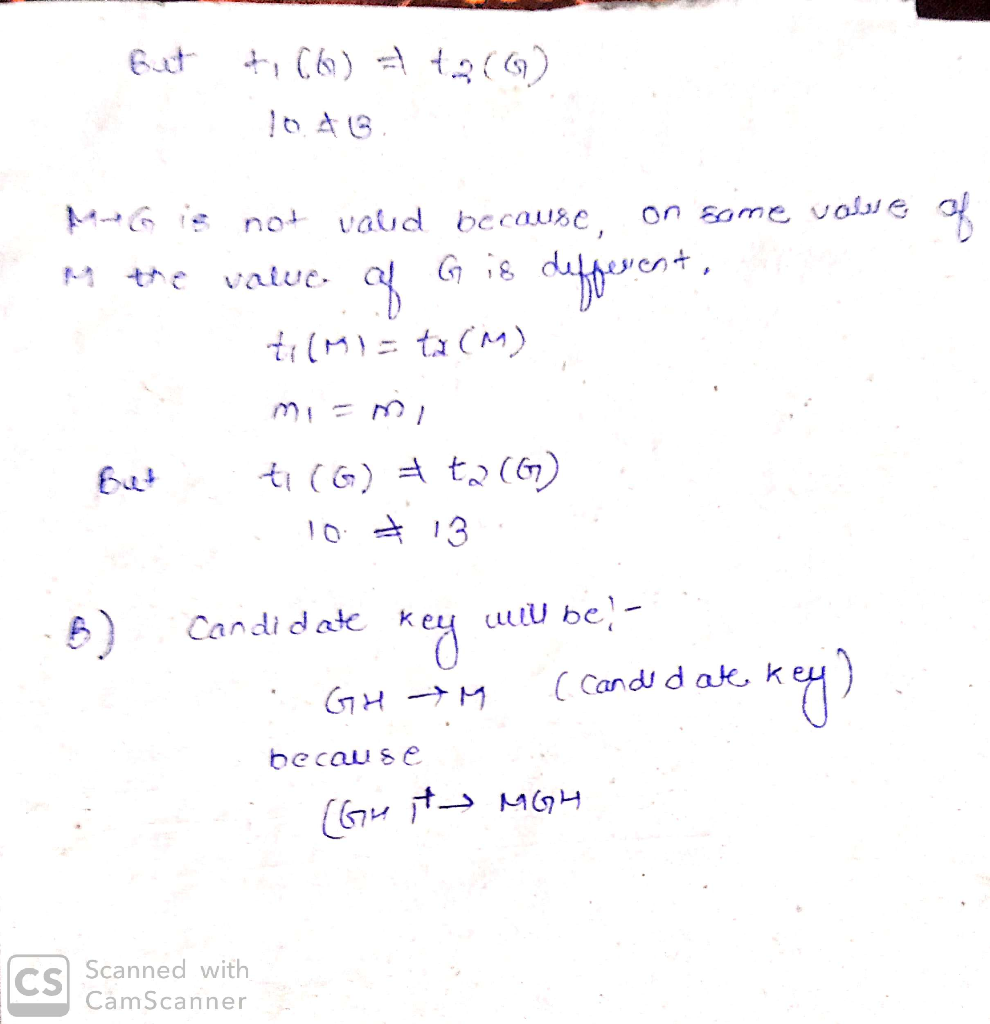 But t1(G) ≠ t2(G)
10 ≠ 13.
M→G is not valid because, on same value of
M the value of G is defferent.
t1(M) = t2(M)
m1 = m1
But t1(G) ≠ t2(G)
10 ≠ 13
B) Candidate key will be:-
GH → M (Candidate key)
because
(GH)+ → MGH
CS Scanned with
CamScanner